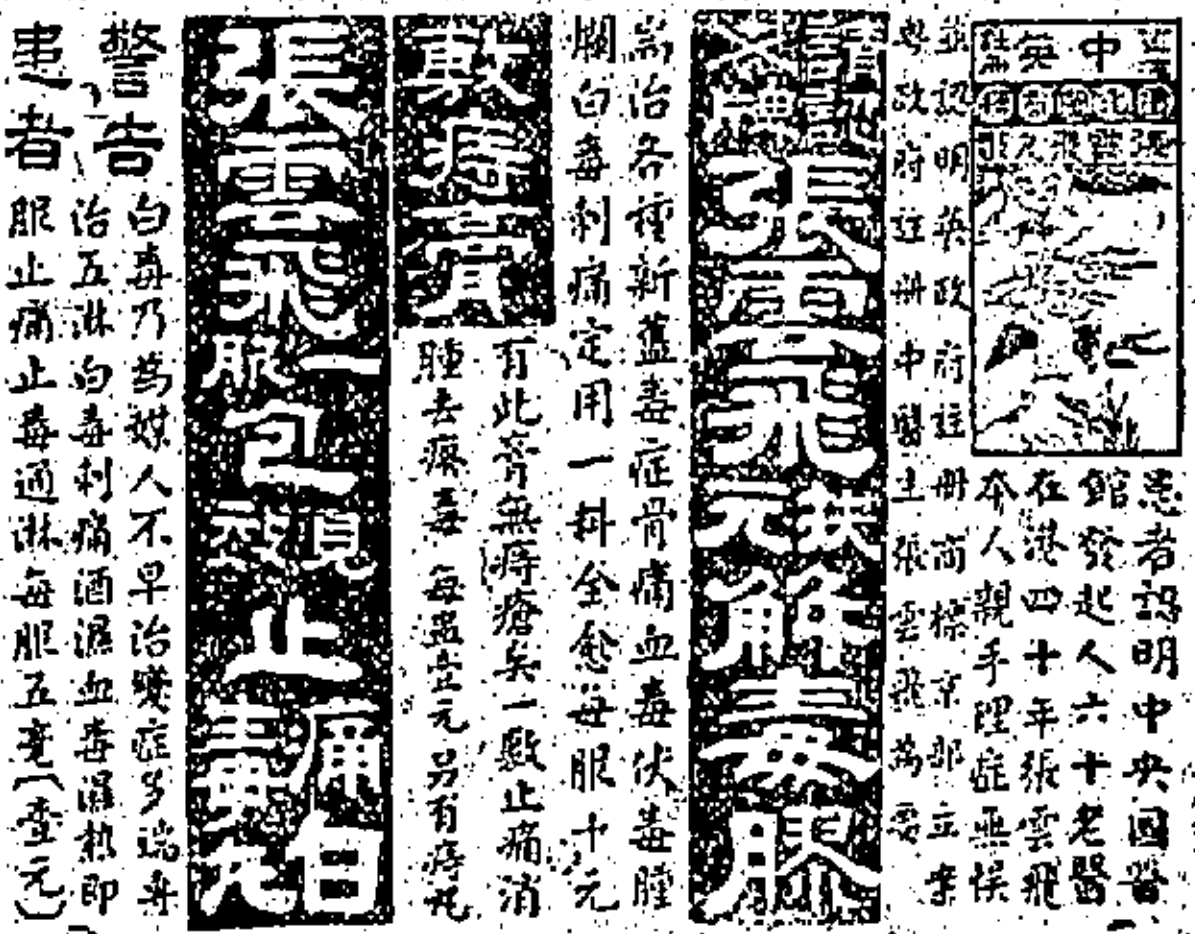 中英
患者認明中央國醫
館發起人六十老醫
在港四十年張雲飛
本人親手理症無悞
並認明英政府註冊商標京部立案
粵政府註冊中醫生張雲飛為要
請認
張雲飛
扶元
解毒膠
為治各種新舊毒症骨痛血毒伏毒腫
爛白毒刺痛定用一料全愈每服十元
敷痔膏
有此膏無痔瘡矣一敷止痛消
腫去瘀毒 每盅壹元 另有痔丸
張雲飛
一服包見效
止痛白毒丸
警告
患者
白毒乃為媒人不早治變症多端再
治五淋白毒刺痛酒濕血毒濕熱即
服止痛止毒通淋每服五毫(壹元)